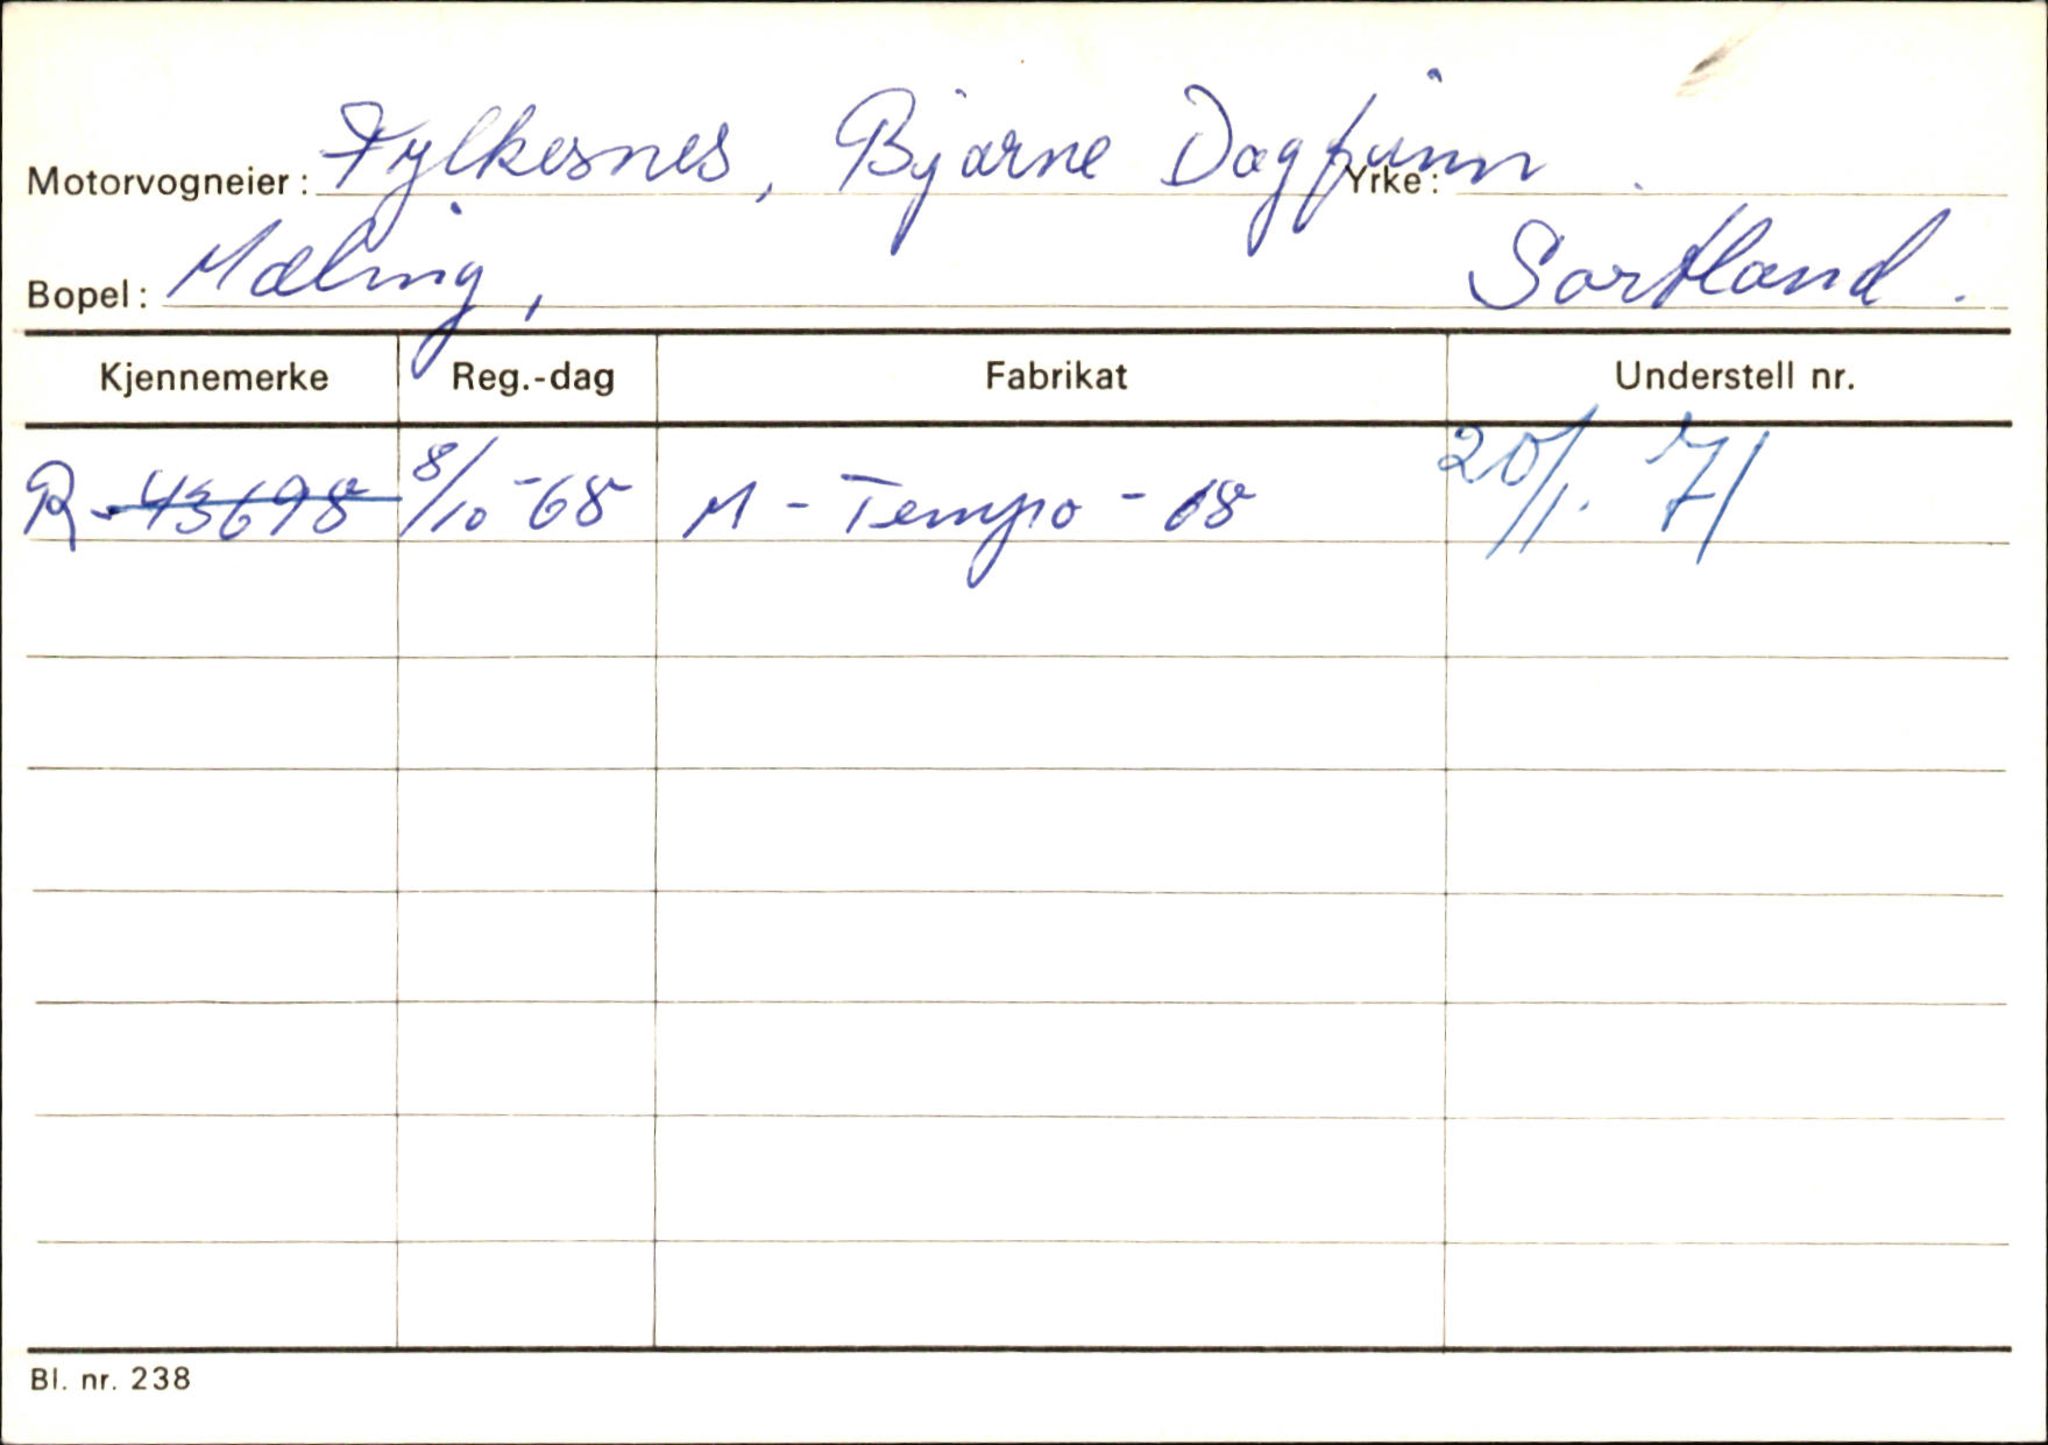 Motorvogneier: Fylkesnes, Bjarne Dagfinn. Yrke:
Bopel: Mæling, Sortland.
Kjennemerke Reg.-dag Fabrikat Understell nr.
R-43698 8/10-68 M-Tempo-68 20/1.71
Bl. nr. 238